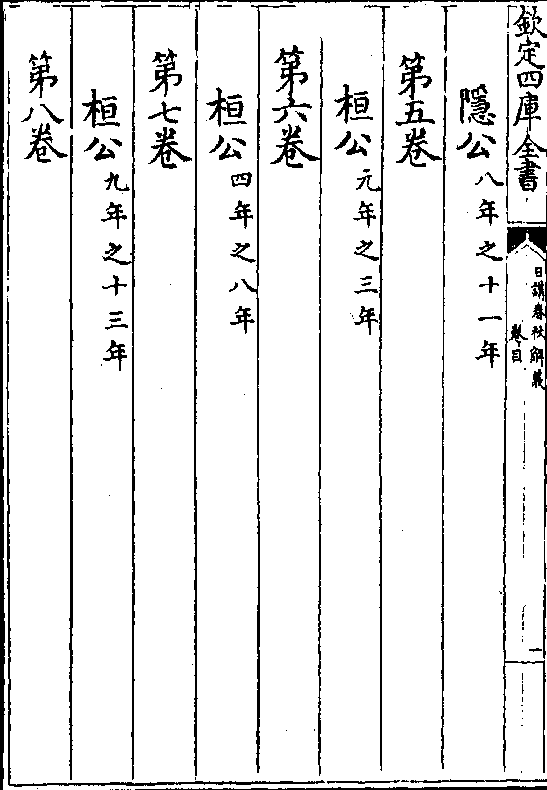 欽定四庫全書
日講春秋解義
卷目
一
隱公八年之十一年
第五卷
桓公元年之三年
第六卷
桓公四年之八年
第七卷
桓公九年之十三年
第八卷